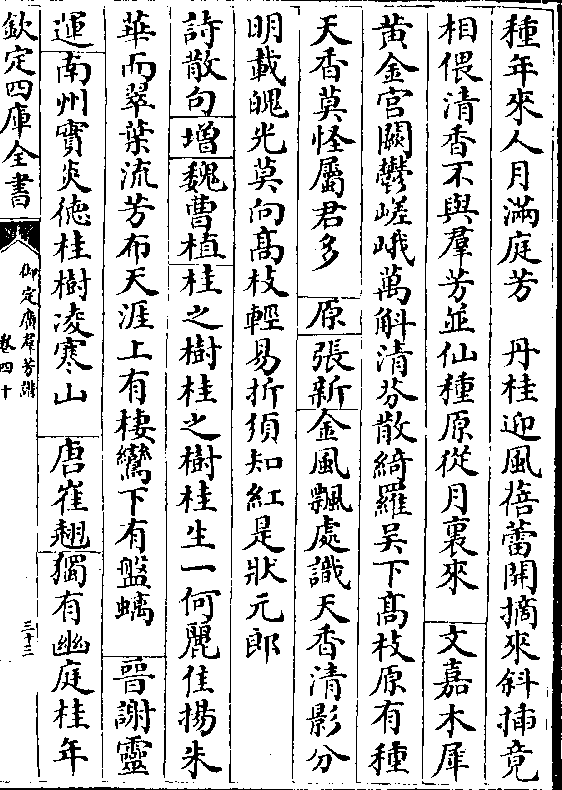 種年來人月滿庭芳　丹桂迎風蓓蕾開摘來斜揷竟
相偎清香不與羣芳並仙種原從月裏來　文嘉木犀
黄金宫闕鬱嵯峨萬斛清芬散綺羅吴下髙枝原有種
天香莫怪屬君多　原　張新金風飄處識天香清影分
明載魄光莫向髙枝輕易折須知紅是狀元郎
詩散句　增　魏曹植桂之樹桂之樹桂生一何麗佳揚朱
華而翠葉流芳布天涯上有棲鸞下有盤螭　晉謝靈
運南州實炎徳桂樹凌寒山　唐崔翹獨有幽庭桂年
欽定四庫全書
御定廣群芳譜
卷四十
三十二